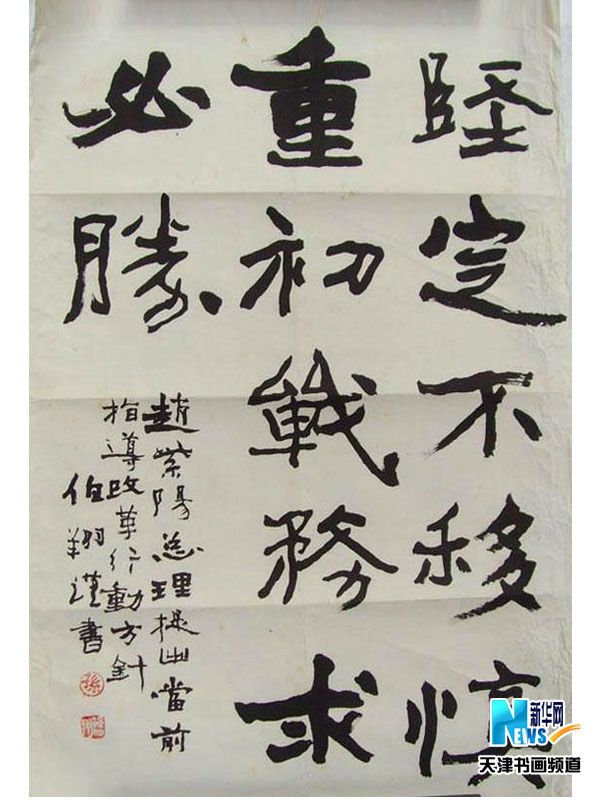 堅定不移慎
重初戰務求
必勝
趙紫陽总理提出當前
指導改革行動方針
伯翔謹書
孫
新华网
NEWS
天津书画频道